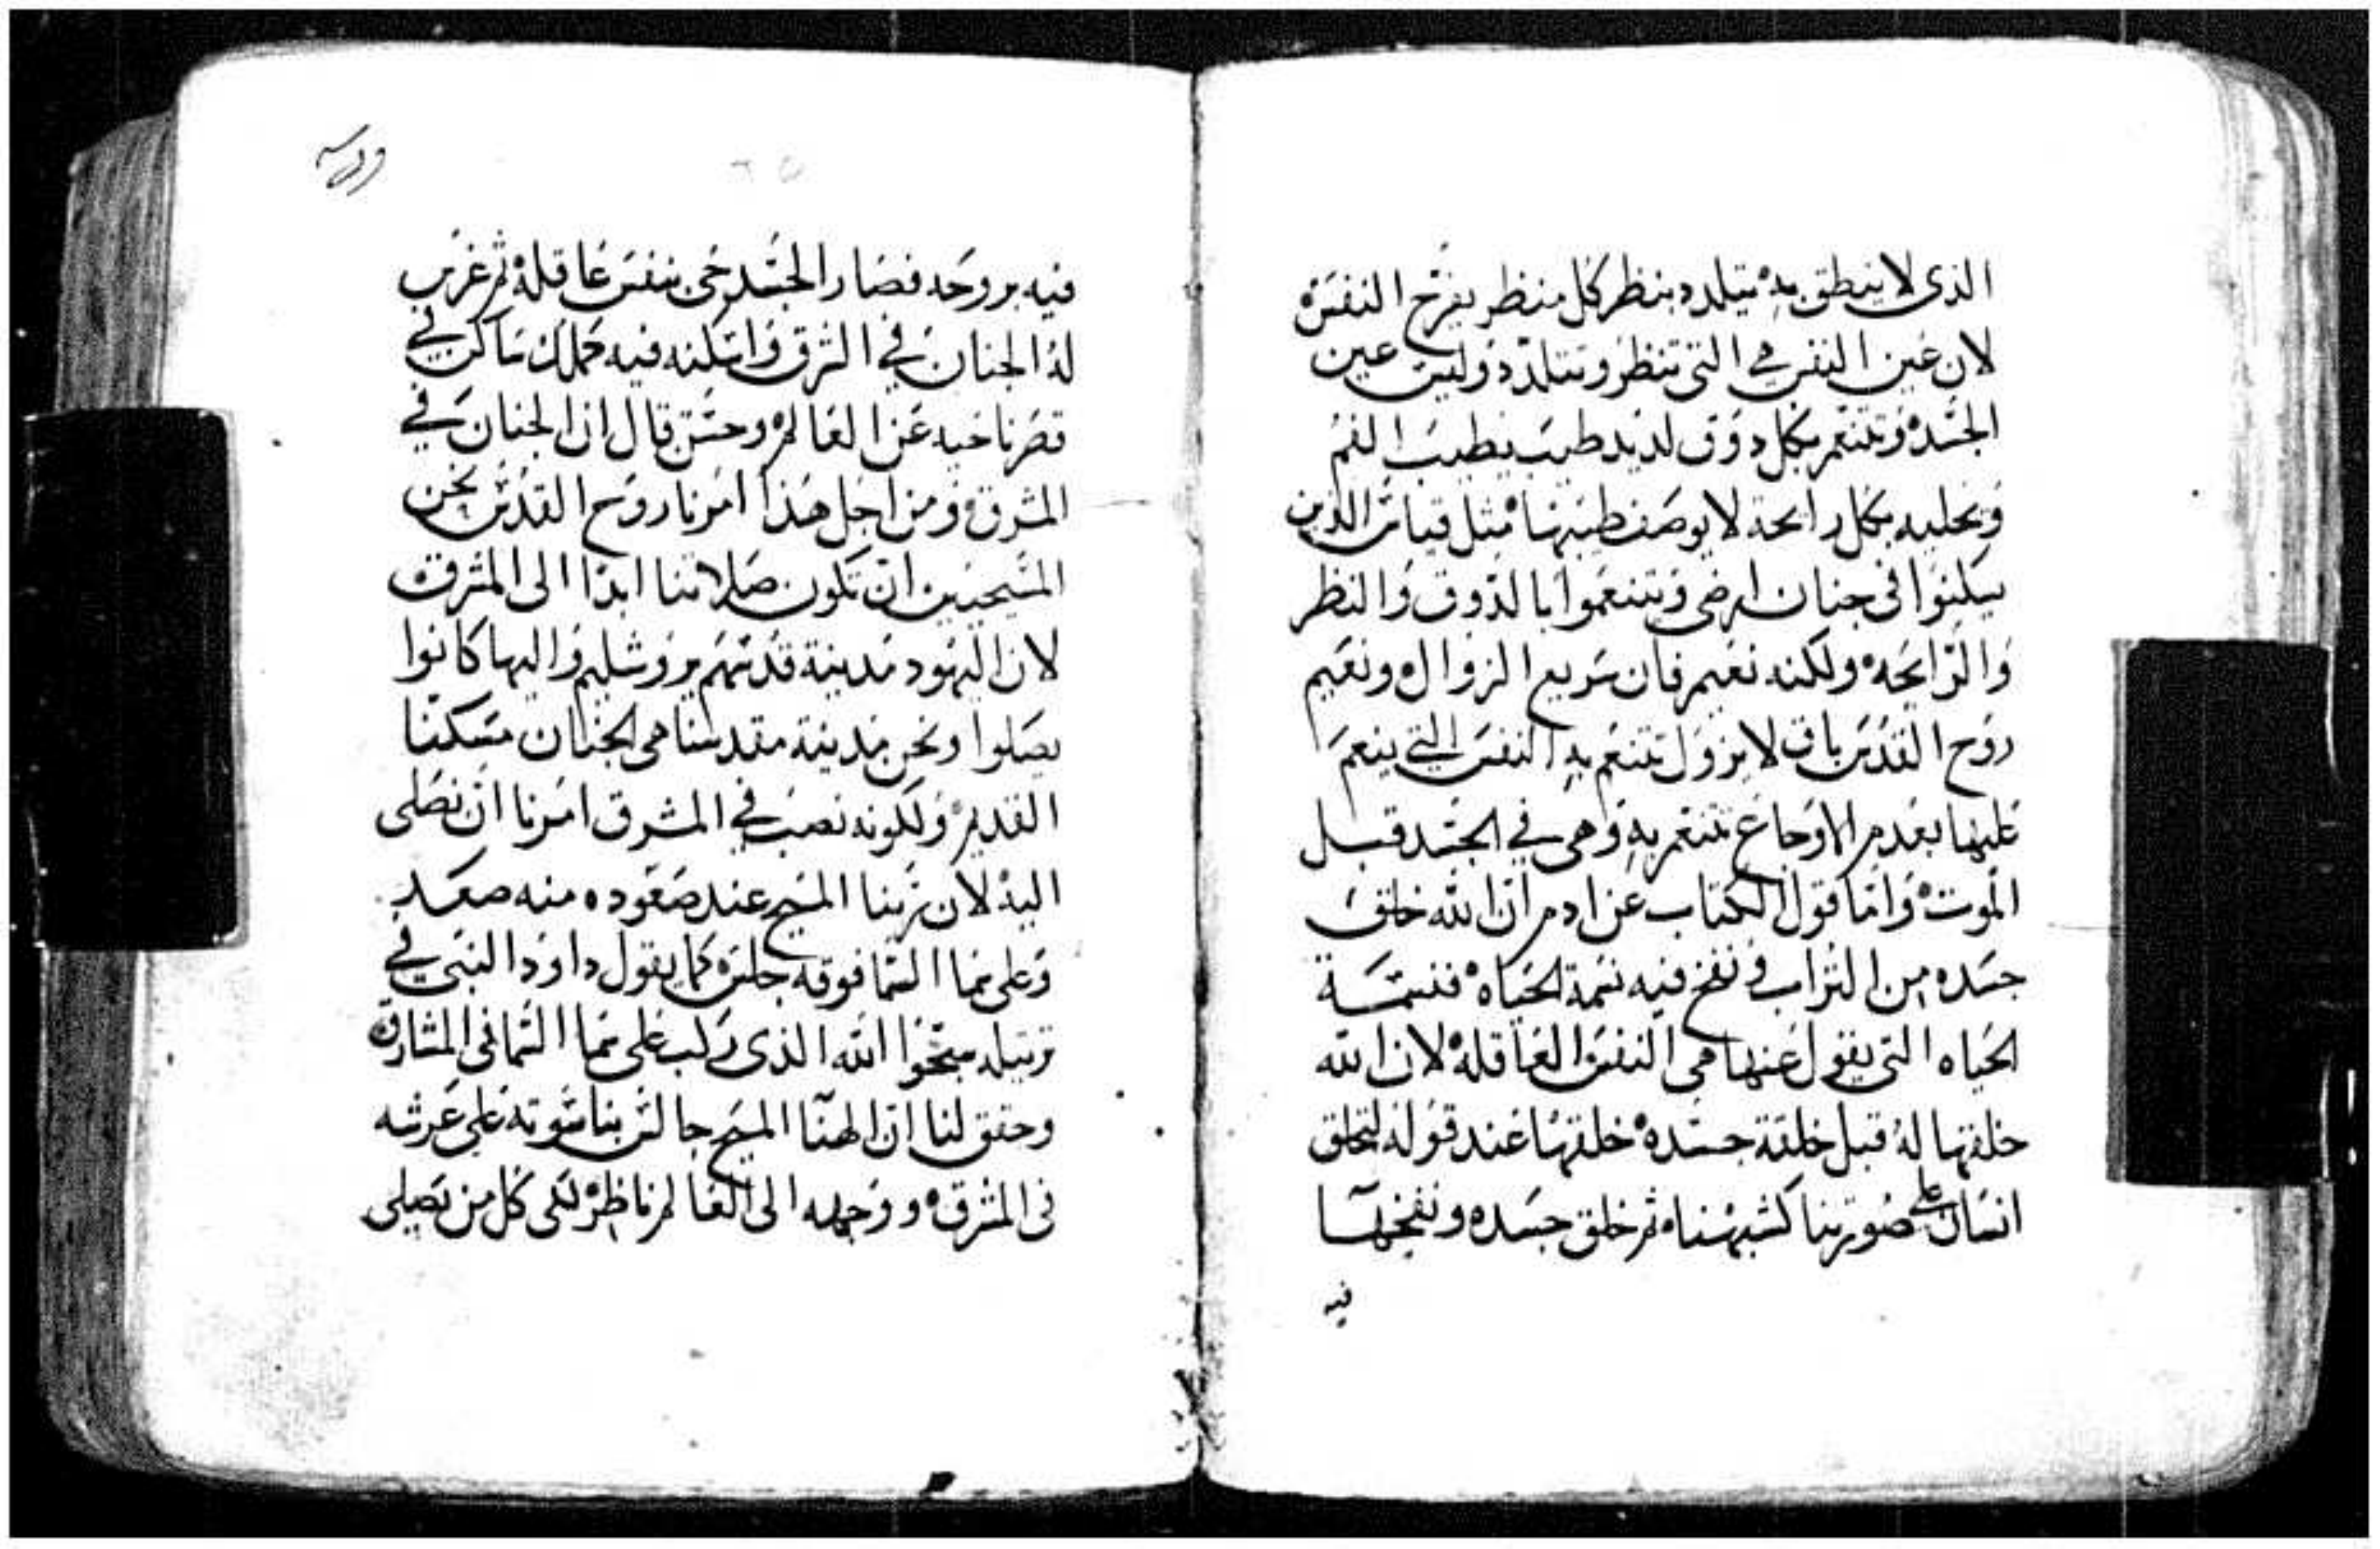 الذى لا ينطق به يتلدد بنظر كل منظر يفرح النفس
لان عين النفس هي التي تنظر وتتلدد وليس عين
الجسد وتتنعم بكل دوق لديد طيب يطيب الفم
وتحليه بكل رايحة لا يوصف طيبها مثل قياس الذين
يسكنوا فى جنان ارضى ويتنعموا بالذوق والنظر
والرايحه ولكنه نعيم فان سريع الزوال ونعيم
روح القدس باق لا يزول تتنعم به النفس التي ينعم
عليها بعدم الاوجاع تتنعم به وهى في الجسد قبل
الموت واما قول الكتاب عن ادم ان الله خلق
جسده من التراب ونفخ فيه نسمة الحياه فنسمة
الحياه التي يقول عنها هي النفس العاقله لان الله
خلقها له قبل خلقة جسده خلقها عند قوله لنخلق
انسان على صورتنا كشبهنا ثم خلق جسده ونفخها
فيه
فيه بروحه فصار الجسد حي بنفس عاقله ثم غرس
له الجنان في الشرق واسكنه فيه كملك ساكن في
قصر ناحيه عن العالم وحسن قال ان الجنان في
المشرق ومن اجل هذا امرنا روح القدس نحن
المسيحيين ان تكون صلاتنا ابدا الى المشرق
لان اليهود مدينة قدسهم يروشليم واليها كانوا
يصلوا ونحن مدينة مقدسنا هى الجنان مسكننا
القديم ولكونه نصب في المشرق امرنا ان نصلى
اليه لان ربنا المسيح عند صعوده منه صعد
وعلى سما السما فوقه جلس كما يقول داود النبى في
ترتيله سبحوا الله الذى ركب على سما السما فى المشارق
وحقق لنا ان الهنا المسيح جالس بناسوته على عرشه
فى المشرق ووجهه الى العالم ناظر لكى كل من يصلى